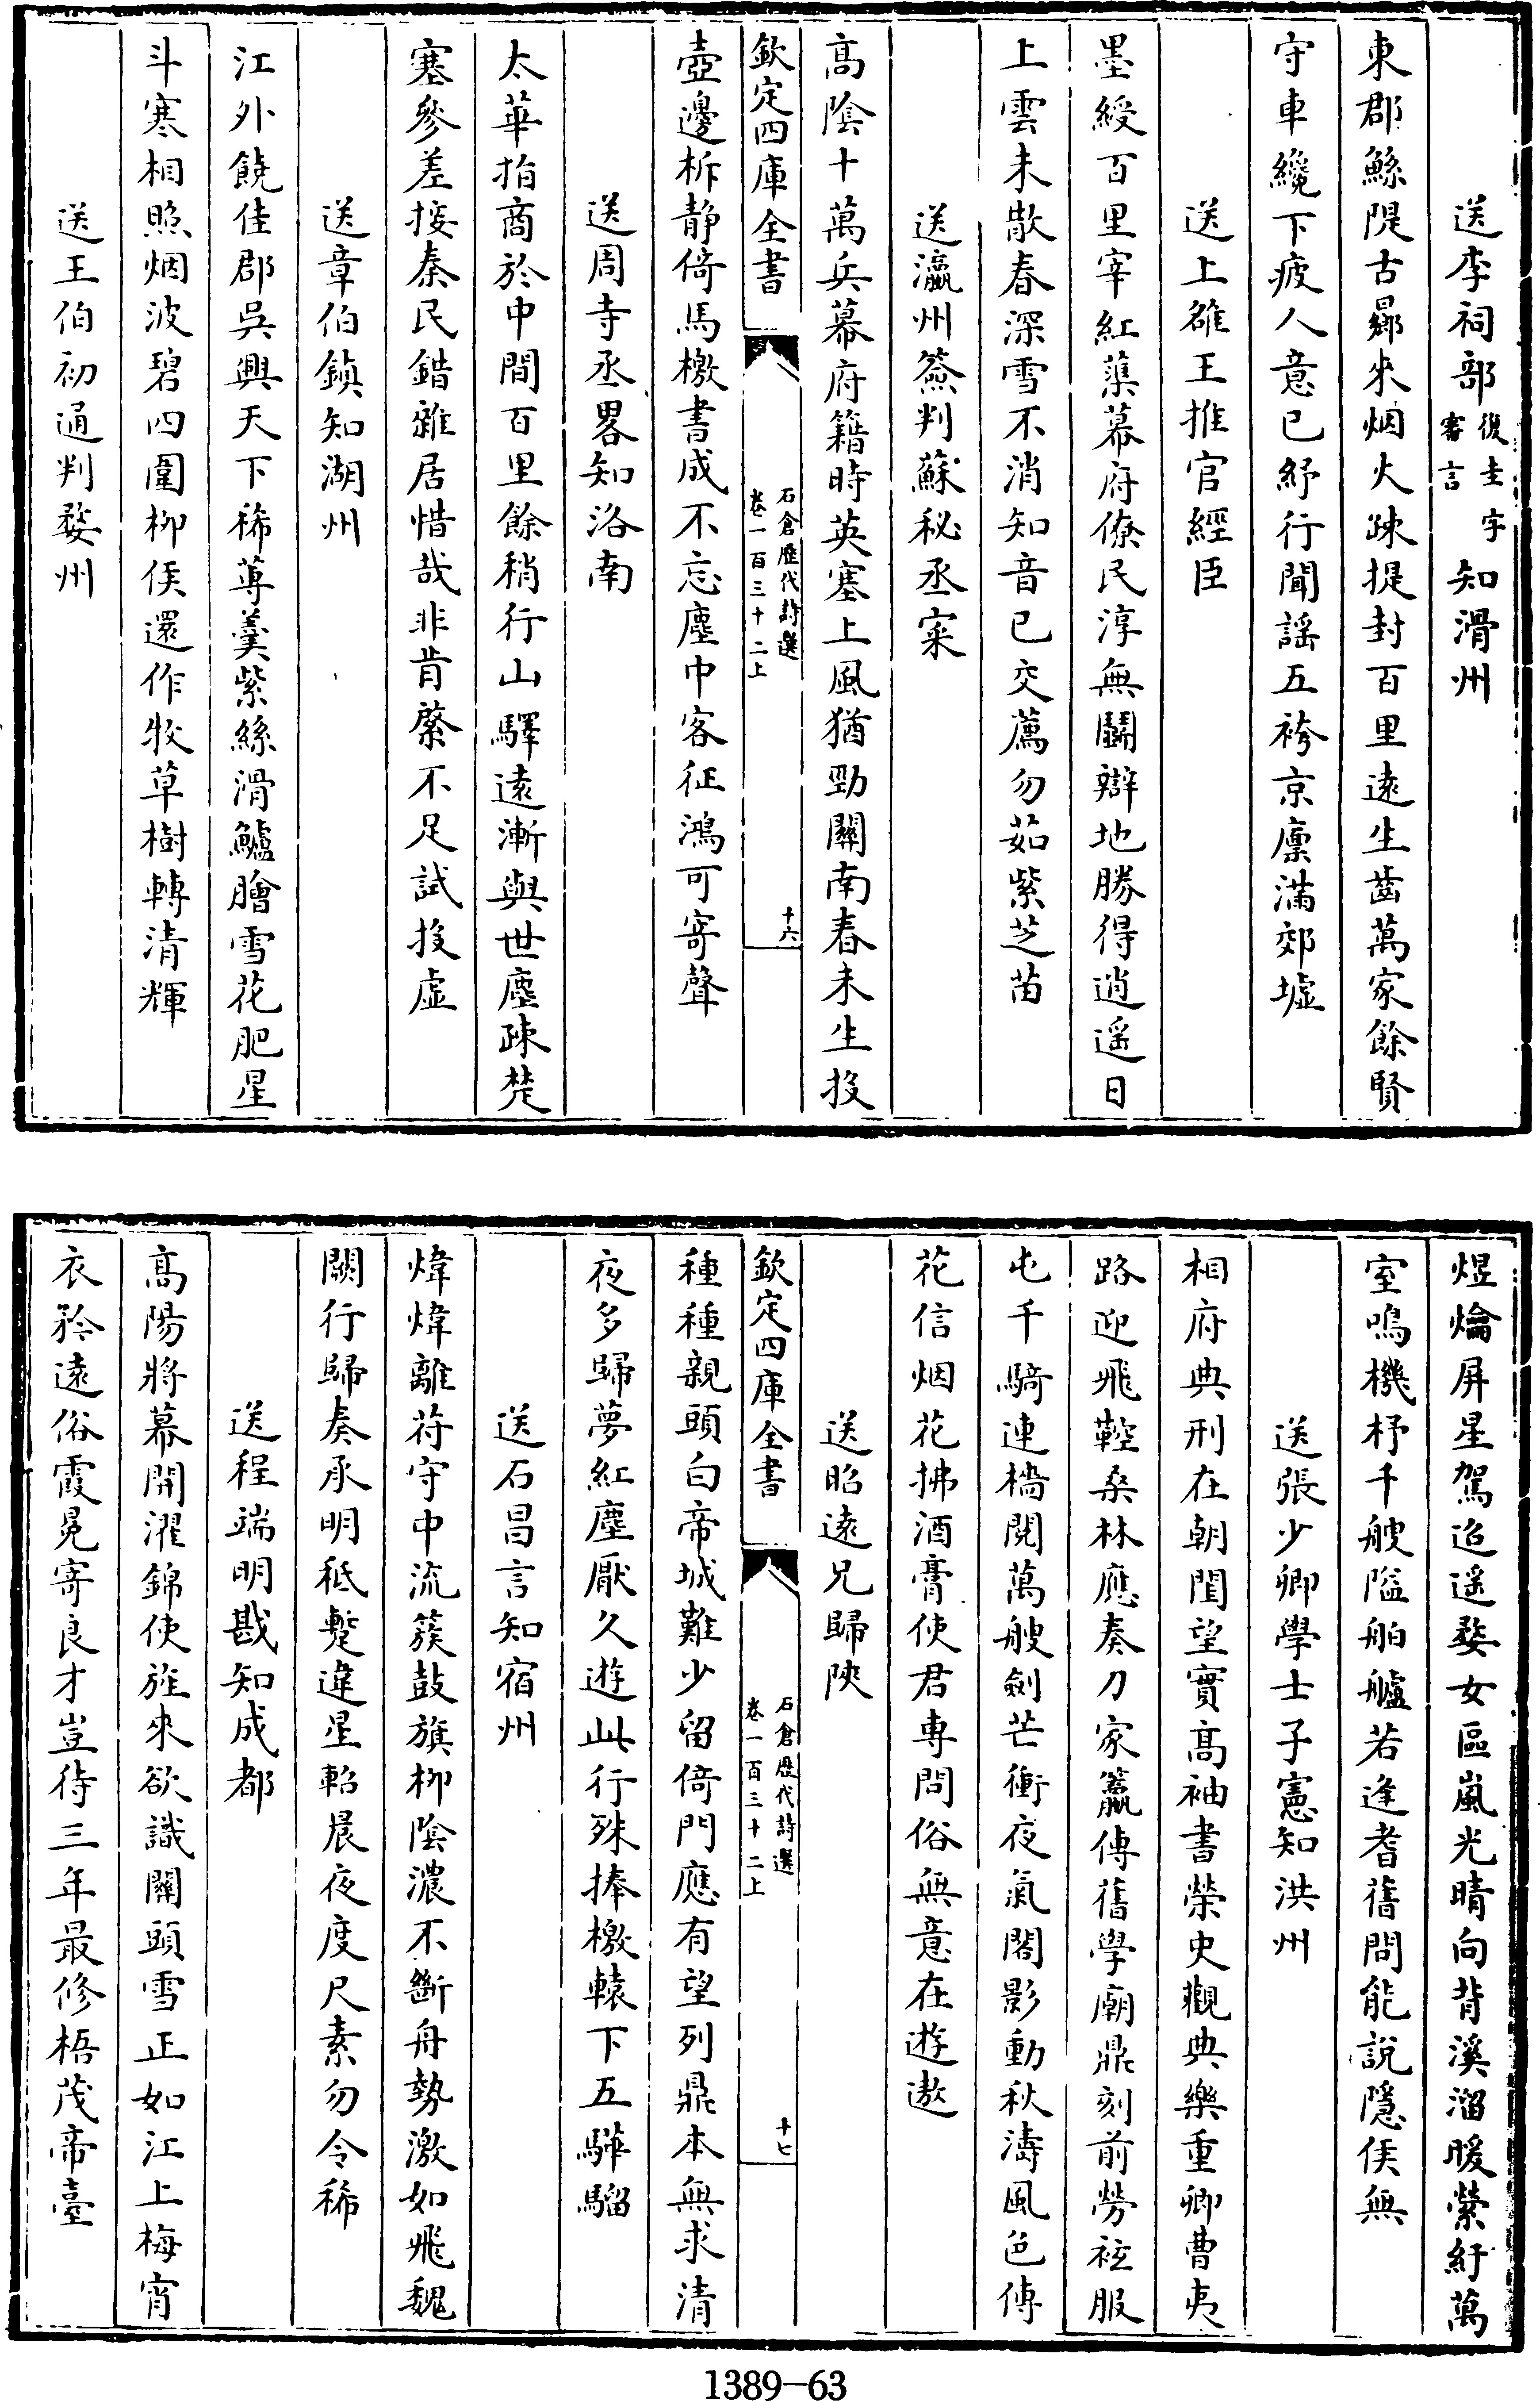 送李祠部復圭字審言知滑州
東郡鯀隄古鄸來烟火疎提封百里遠生齒萬家餘賢
守車纔下疲人意已紓行聞謡五袴京廩滿郊墟
送上雒王推官經臣
墨綬百里宰紅蕖幕府僚民淳無鬭辯地勝得逍遥日
上雲未散春深雪不消知音已交薦勿茹紫芝苗
送瀛州簽判蘇秘丞寀
髙陰十萬兵幕府籍時英塞上風猶勁闗南春未生投
欽定四庫全書
石倉歷代詩選
卷一百三十二上
十六
壺邊柝静倚馬檄書成不忘塵中客征鴻可寄聲
送周寺丞畧知洛南
太華指商於中間百里餘稍行山驛遠漸與世塵疎楚
塞參差接秦民錯雜居惜哉非肯綮不足試投虚
送章伯鎮知湖州
江外饒佳郡吳興天下稀蓴羮紫絲滑鱸膾雪花肥星
斗寒相照烟波碧四圍柳侯還作牧草樹轉清輝
送王伯初通判婺州
煜爚屏星駕迢遥婺女區嵐光晴向背溪溜暖縈紆萬
室鳴機杼千艘隘舳艫若逢耆舊問能說隱侯無
送張少卿學士子憲知洪州
相府典刑在朝閨望實髙袖書榮史觀典樂重卿曹夷
路迎飛鞚桑林應奏刀家籯傳舊學廟鼎刻前勞袨服
屯千騎連檣閱萬艘劍芒衝夜氣閣影動秋濤風色傳
花信烟花拂酒膏使君専問俗無意在遊遨
送昭遠兄歸陜
欽定四庫全書
石倉歷代詩選
卷一百三十二上
十七
種種親頭白帝城難少留倚門應有望列鼎本無求清
夜多歸夢紅塵厭久遊此行殊捧檄轅下五驊騮
送石昌言知宿州
煒煒離符守中流簇鼓旗柳陰濃不斷舟勢激如飛魏
闕行歸奏承明秪蹔違星軺晨夜度尺素勿令稀
送程端明戡知成都
髙陽將幕開濯錦使旌來欲識闗頭雪正如江上梅宵
衣矜遠俗霞冕寄良才豈待三年最修梧茂帝臺
1389-63